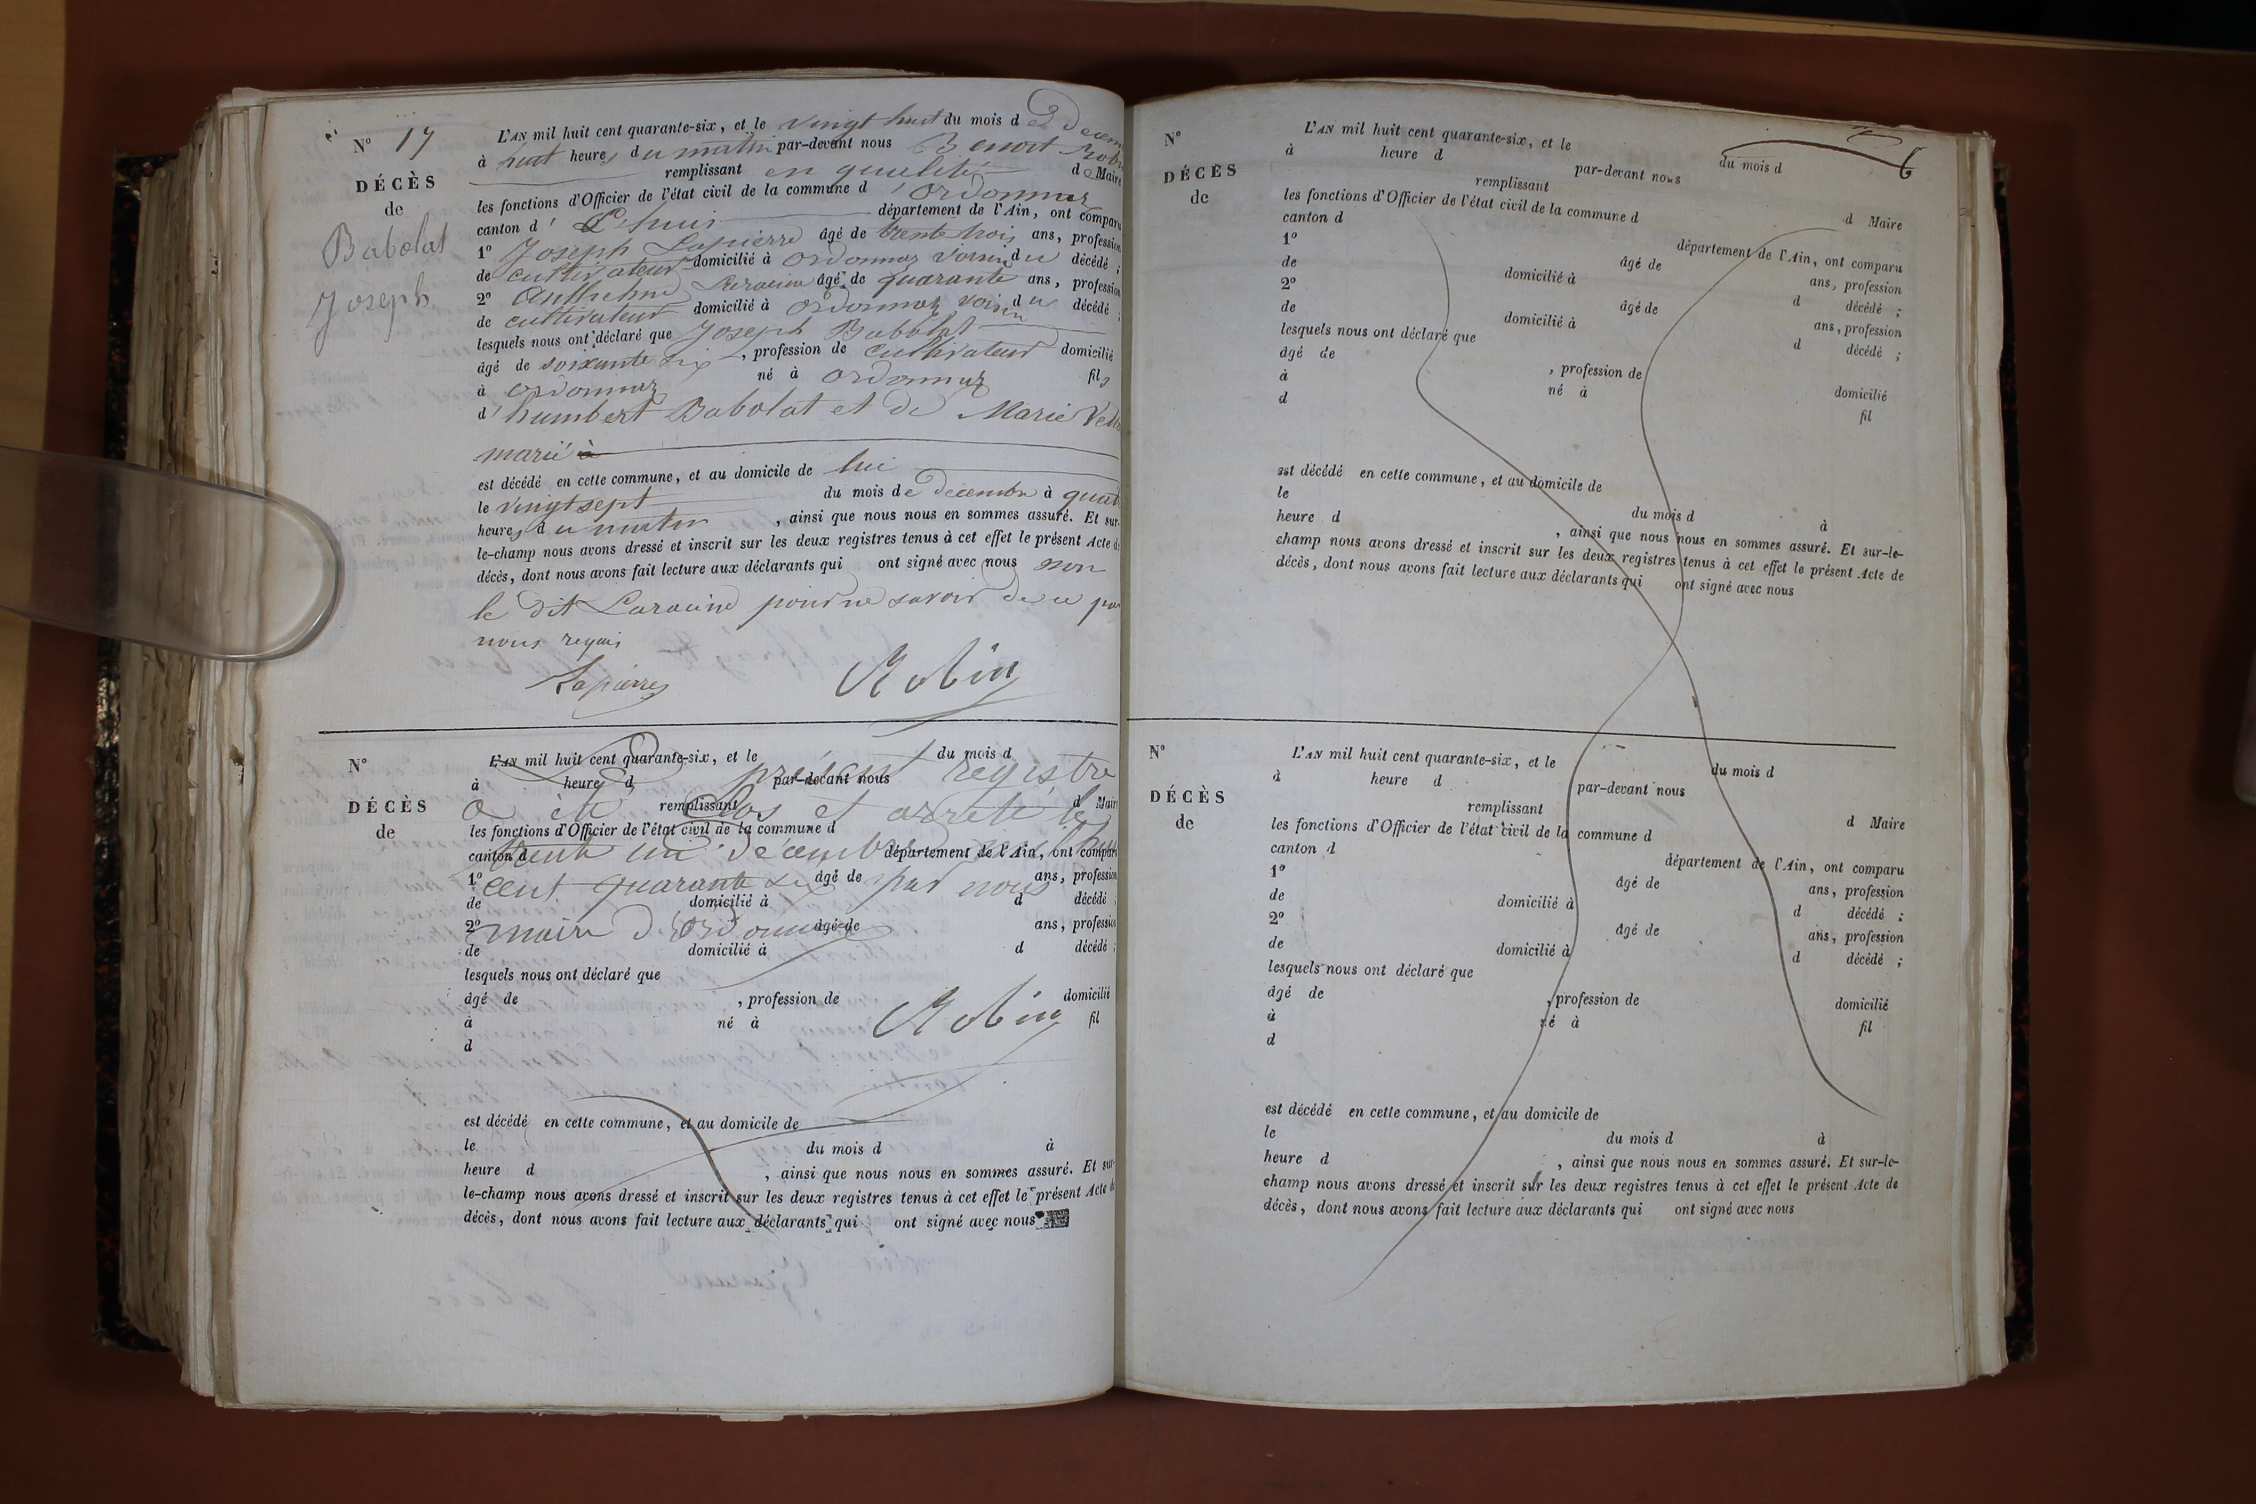 N° 17
DÉCÈS
de
Babolat
Joseph
L'AN mil huit cent quarante-six, et le vingt huit du mois de Decem
à huit heures du matin par-devant nous Benoit Robi
remplissant en qualité de Maire
les fonctions d'Officier de l'état civil de la commune d'Ordonnaz
canton d' L'huis département de l'Ain, ont comparu
1° Joseph Lapierre âgé de trente trois ans, profession
de cultivateur domicilié à Ordonnaz voisin du décédé ;
2° Anthelme Laracine âgé de quarante ans, profession
de cultivateur domicilié à Ordonnaz voisin du décédé ;
lesquels nous ont déclaré que Joseph Babolat
âgé de soixante six, profession de cultivateur domicilié
à Ordonnaz né à Ordonnaz fils
d'humbert Babolat et de Marie
marié
est décédé en cette commune, et au domicile de lui
le vingt sept du mois de decembre à quat
heures du matin, ainsi que nous nous en sommes assuré. Et sur-
le-champ nous avons dressé et inscrit sur les deux registres tenus à cet effet le présent Acte de
décès, dont nous avons fait lecture aux déclarants qui ont signé avec nous non
le dit Laracine pour ne savoir de ce par
nous requis
Lapierre Robin
N°
DÉCÈS
de
L'AN mil huit cent quarante-six, et le du mois d
à heure d par-devant nous
remplissant d Maire
les fonctions d'Officier de l'état civil de la commune d
canton d département de l'Ain, ont comparu
1° âgé de ans, profession
de domicilié à d décédé ;
2° âgé de ans, profession
de domicilié à d décédé ;
lesquels nous ont déclaré que
âgé de , profession de domicilié
à né à fil
d
présent registre
a été clos et arreté le
trente un decembre mil huit
cent quarante six par nous
maire d'Ordonnaz
Robin
est décédé en cette commune, et au domicile de
le du mois d à
heure d , ainsi que nous nous en sommes assuré. Et sur-
le-champ nous avons dressé et inscrit sur les deux registres tenus à cet effet le présent Acte de
décès, dont nous avons fait lecture aux déclarants qui ont signé avec nous
6
N°
DÉCÈS
de
L'AN mil huit cent quarante-six, et le du mois d
à heure d par-devant nous
remplissant d Maire
les fonctions d'Officier de l'état civil de la commune d
canton d département de l'Ain, ont comparu
1° âgé de ans, profession
de domicilié à d décédé ;
2° âgé de ans, profession
de domicilié à d décédé ;
lesquels nous ont déclaré que
âgé de , profession de domicilié
à né à fil
d
est décédé en cette commune, et au domicile de
le du mois d à
heure d , ainsi que nous nous en sommes assuré. Et sur-le-
champ nous avons dressé et inscrit sur les deux registres tenus à cet effet le présent Acte de
décès, dont nous avons fait lecture aux déclarants qui ont signé avec nous
N°
DÉCÈS
de
L'AN mil huit cent quarante-six, et le du mois d
à heure d par-devant nous
remplissant d Maire
les fonctions d'Officier de l'état civil de la commune d
canton d département de l'Ain, ont comparu
1° âgé de ans, profession
de domicilié à d décédé ;
2° âgé de ans, profession
de domicilié à d décédé ;
lesquels nous ont déclaré que
âgé de , profession de domicilié
à né à fil
d
est décédé en cette commune, et au domicile de
le du mois d à
heure d , ainsi que nous nous en sommes assuré. Et sur-le-
champ nous avons dressé et inscrit sur les deux registres tenus à cet effet le présent Acte de
décès, dont nous avons fait lecture aux déclarants qui ont signé avec nous